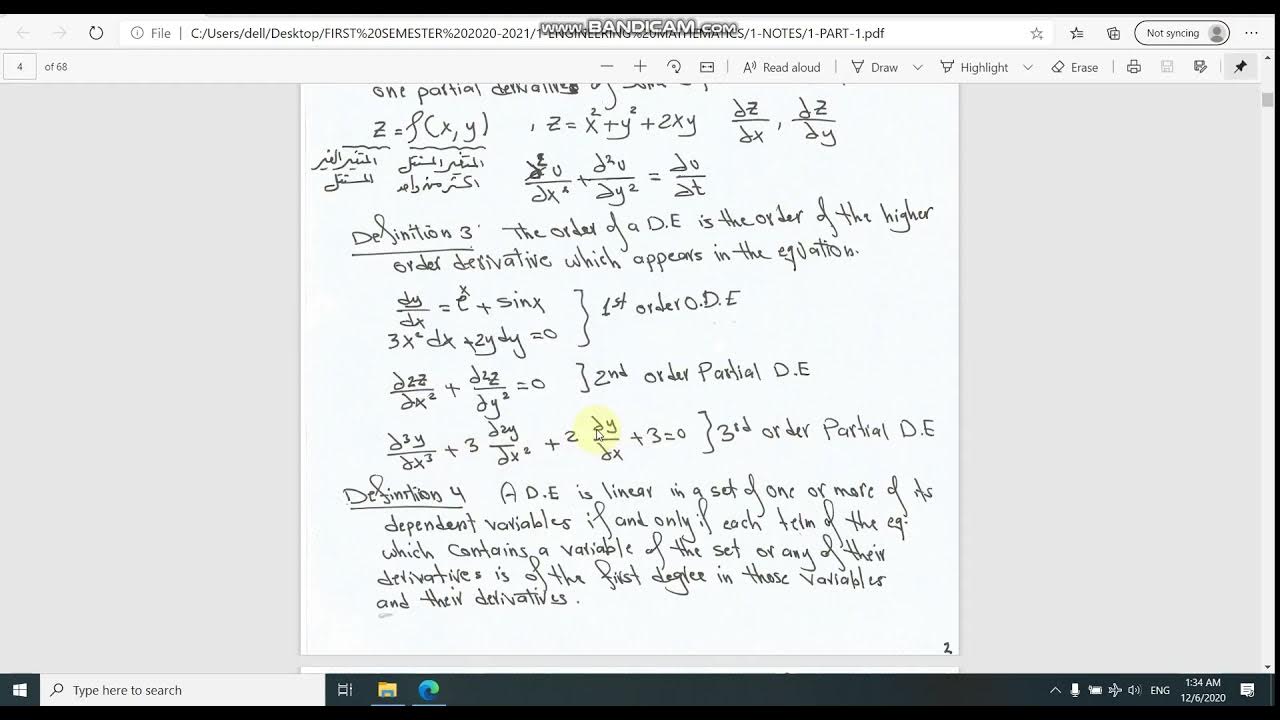 www.BANDICAM.com
File
C:/Users/dell/Desktop/FIRST%20SEMESTER%202020-2021/1-ENGINEERING%20MATHEMATICS/1-NOTES/1-PART-1.pdf
Not syncing
4 of 68
Read aloud
Draw
Highlight
Erase
one partial derivatives of
Z = f(x, y) , Z = x² + y² + 2xy ∂Z/∂x , ∂Z/∂y
المتغير الغير المتغير المستقل
المستقل اكثر من واحد
∂²u/∂x² + ∂²u/∂y² = ∂u/∂t
Definition 3: The order of a D.E is the order of the higher
order derivative which appears in the equation.
dy/dx = eˣ + sinx } 1st order O.D.E
3x² dx + 2y dy = 0
∂²Z/∂x² + ∂²Z/∂y² = 0 } 2nd order Partial D.E
∂³y/∂x³ + 3 ∂²y/∂x² + 2 ∂y/∂x + 3 = 0 } 3rd order Partial D.E
Definition 4 A D.E is linear in a set of one or more of its
dependent variables if and only if each term of the eq.
which contains a variable of the set or any of their
derivatives is of the first degree in those variables
and their derivatives.
2
Type here to search
ENG
1:34 AM
12/6/2020